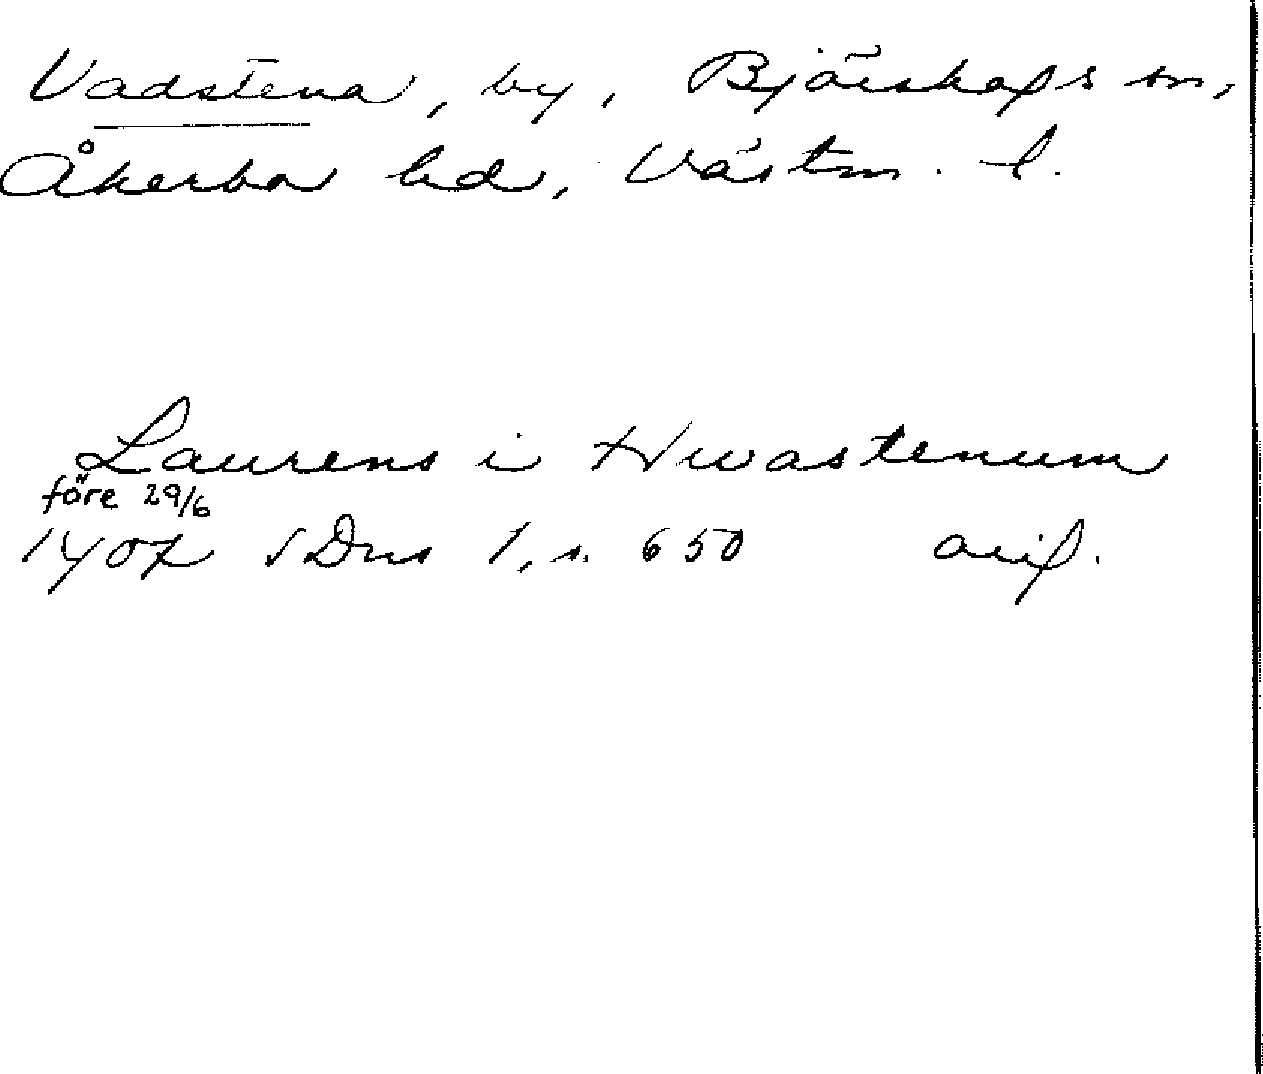 Vadstena, by, Björskogs sn,
Åkerbo hd, Västm. l.
Laurens i Hwastenum
före 29/6
1407 SDns 1, s. 650 avs.